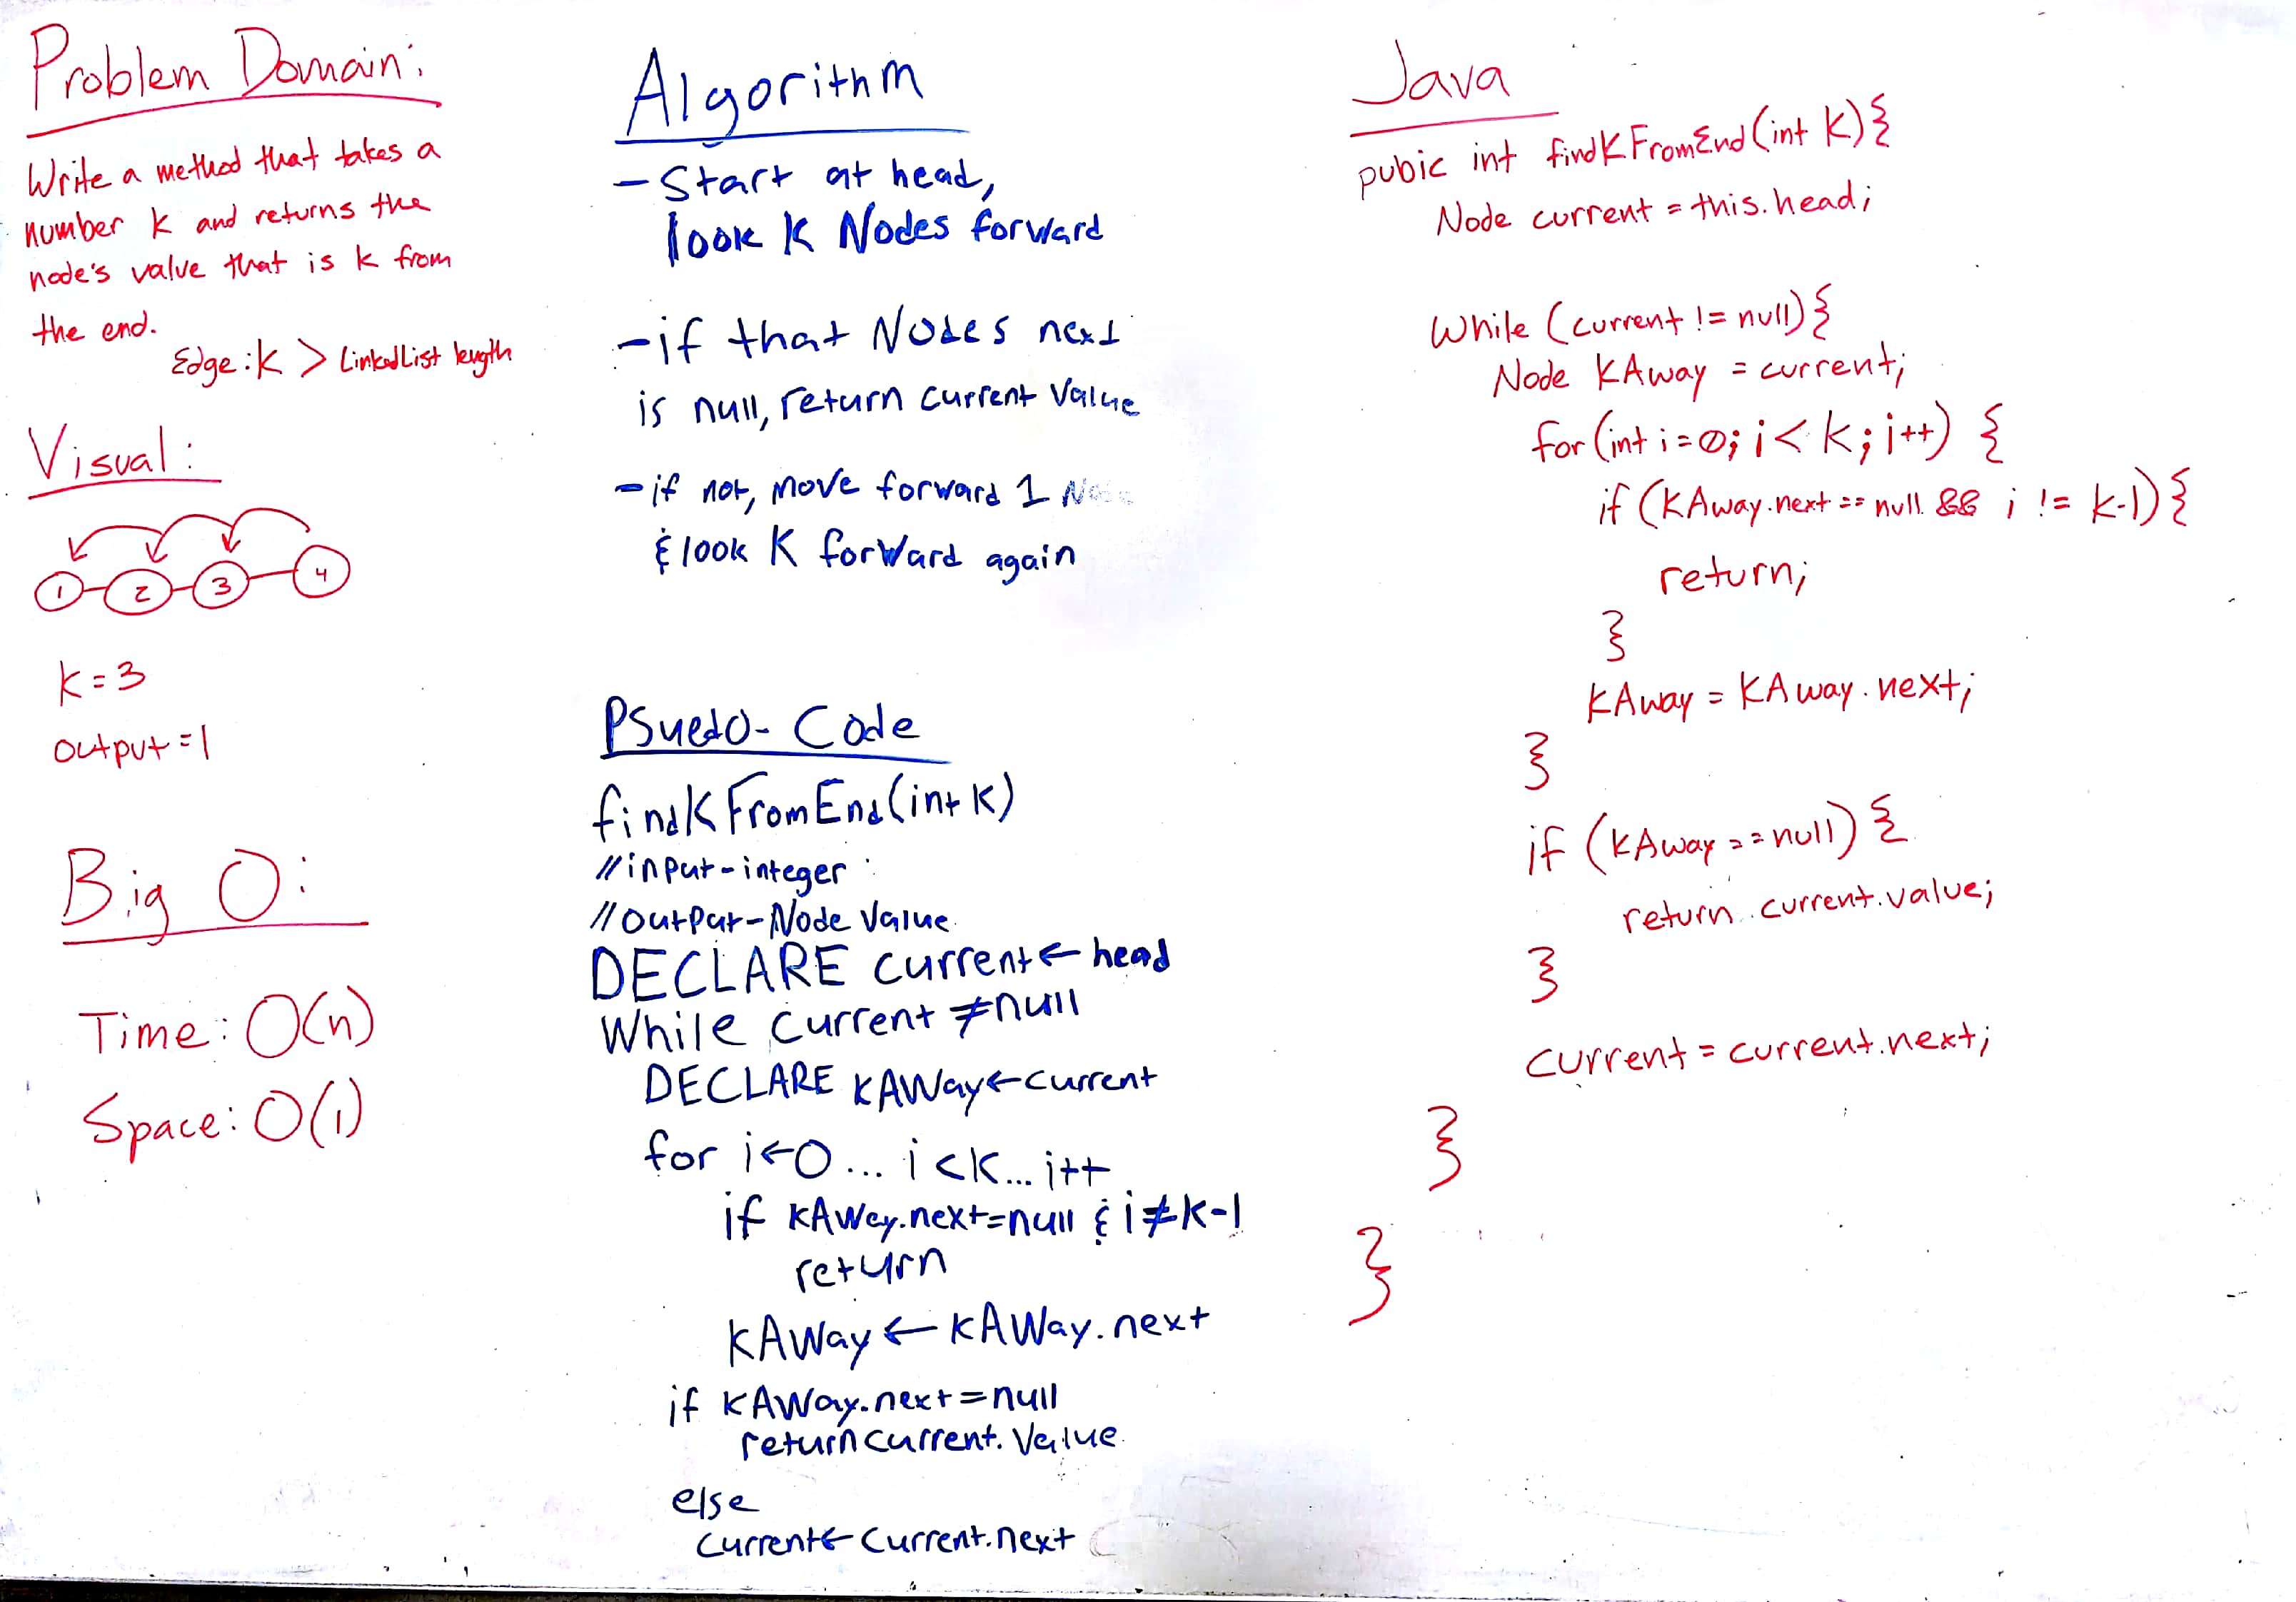 Problem Domain:
Write a method that takes a
number k and returns the
node's value that is k from
the end.
Edge: k > LinkedList length
Visual:
1 2 3 4
k = 3
output = 1
Big O:
Time: O(n)
Space: O(1)
Algorithm
- Start at head,
look K Nodes forward
- if that Nodes next
is null, return current Value
- if not, move forward 1 Node
& look K forward again
PSuedo-Code
findKFromEnd(int K)
// input - integer
// output - Node Value
DECLARE current ← head
While current ≠ null
DECLARE KAWay ← current
for i ← 0 ... i < K ... i++
if KAWay.next = null & i ≠ K-1
return
KAWay ← KAWay.next
if KAWay.next = null
return current.Value
else
current ← current.next
Java
pubic int findKFromEnd(int K){
Node current = this.head;
While (current != null){
Node KAway = current;
for (int i = 0; i < k; i++) {
if (KAway.next == null && i != k-1){
return;
}
KAway = KAway.next;
}
if (KAway == null) {
return current.value;
}
current = current.next;
}
}